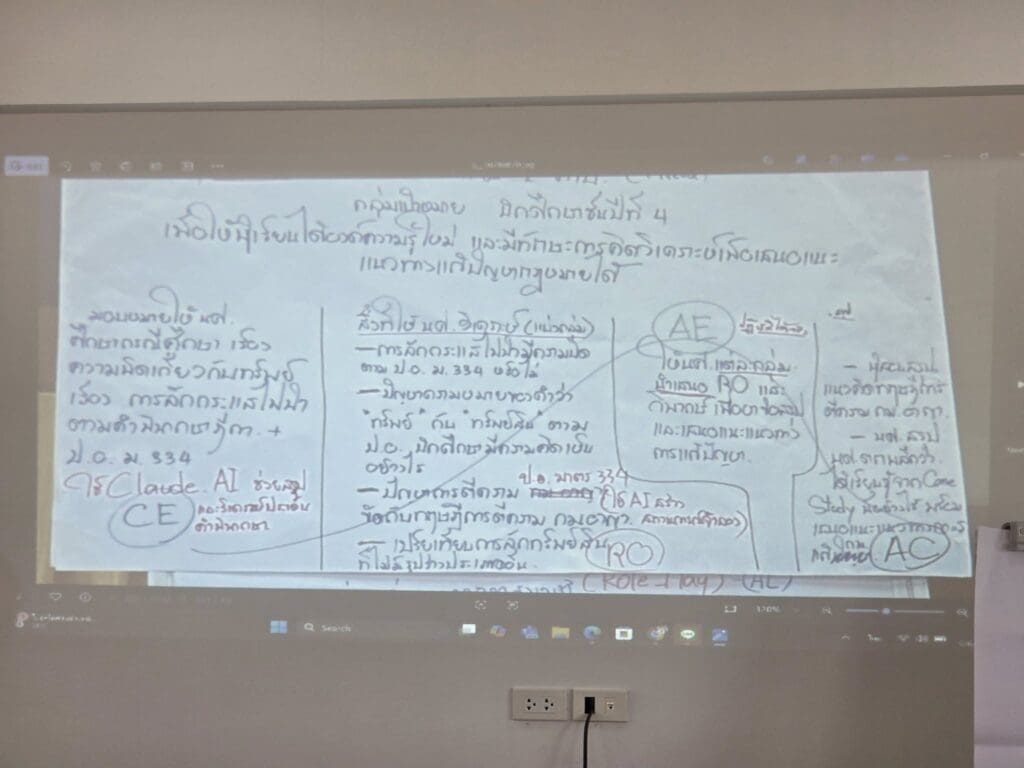 กลุ่มเป้าหมาย นักศึกษาชั้นปีที่ 4
เพื่อให้ผู้เรียนได้องค์ความรู้ใหม่ และมีทักษะการคิดวิเคราะห์เพื่อเสนอแนะ
แนวทางแก้ปัญหากฎหมายได้
มอบหมายให้ นศ.
ศึกษากรณีศึกษา เรื่อง
ความผิดเกี่ยวกับทรัพย์
เรื่อง การลักกระแสไฟฟ้า
ตามคำพิพากษาฎีกา +
ป.อ. ม. 334
ใช้ Claude. AI ช่วยสรุป
คำพิพากษา
CE
สิ่งที่ให้ นศ. วิเคราะห์ (แบ่งกลุ่ม)
- การลักกระแสไฟฟ้ามีความผิด
ตาม ป.อ. ม. 334 หรือไม่
- ปัญหาความหมายของคำว่า
ทรัพย์ กับ ทรัพย์สิน ตาม
ป.อ. นักศึกษามีความคิดเห็น
อย่างไร
ป.อ. มาตรา 334
- ปัญหาการตีความ
ขัดกับทฤษฎีการตีความ กม.อาญา
(ใช้ AI สร้าง
สถานการณ์จำลอง)
- เปรียบเทียบการลักทรัพย์สิน
ที่ไม่มีรูปร่างประเภทอื่น
RO
AE
ให้ นศ. แต่ละกลุ่ม
นำเสนอ RO และ
วิพากษ์ เพื่อหาข้อสรุป
และเสนอแนะแนวทาง
การแก้ปัญหา
- ผู้สอนสรุป
แนวคิดทฤษฎีการ
ตีความ กม. อาญา.
- นศ. สรุป
ได้เรียนรู้จาก Case
Study นี้อย่างไร พร้อม
เสนอแนะแนวทางการ
AC
(Role Play) (AE)
Search
120%